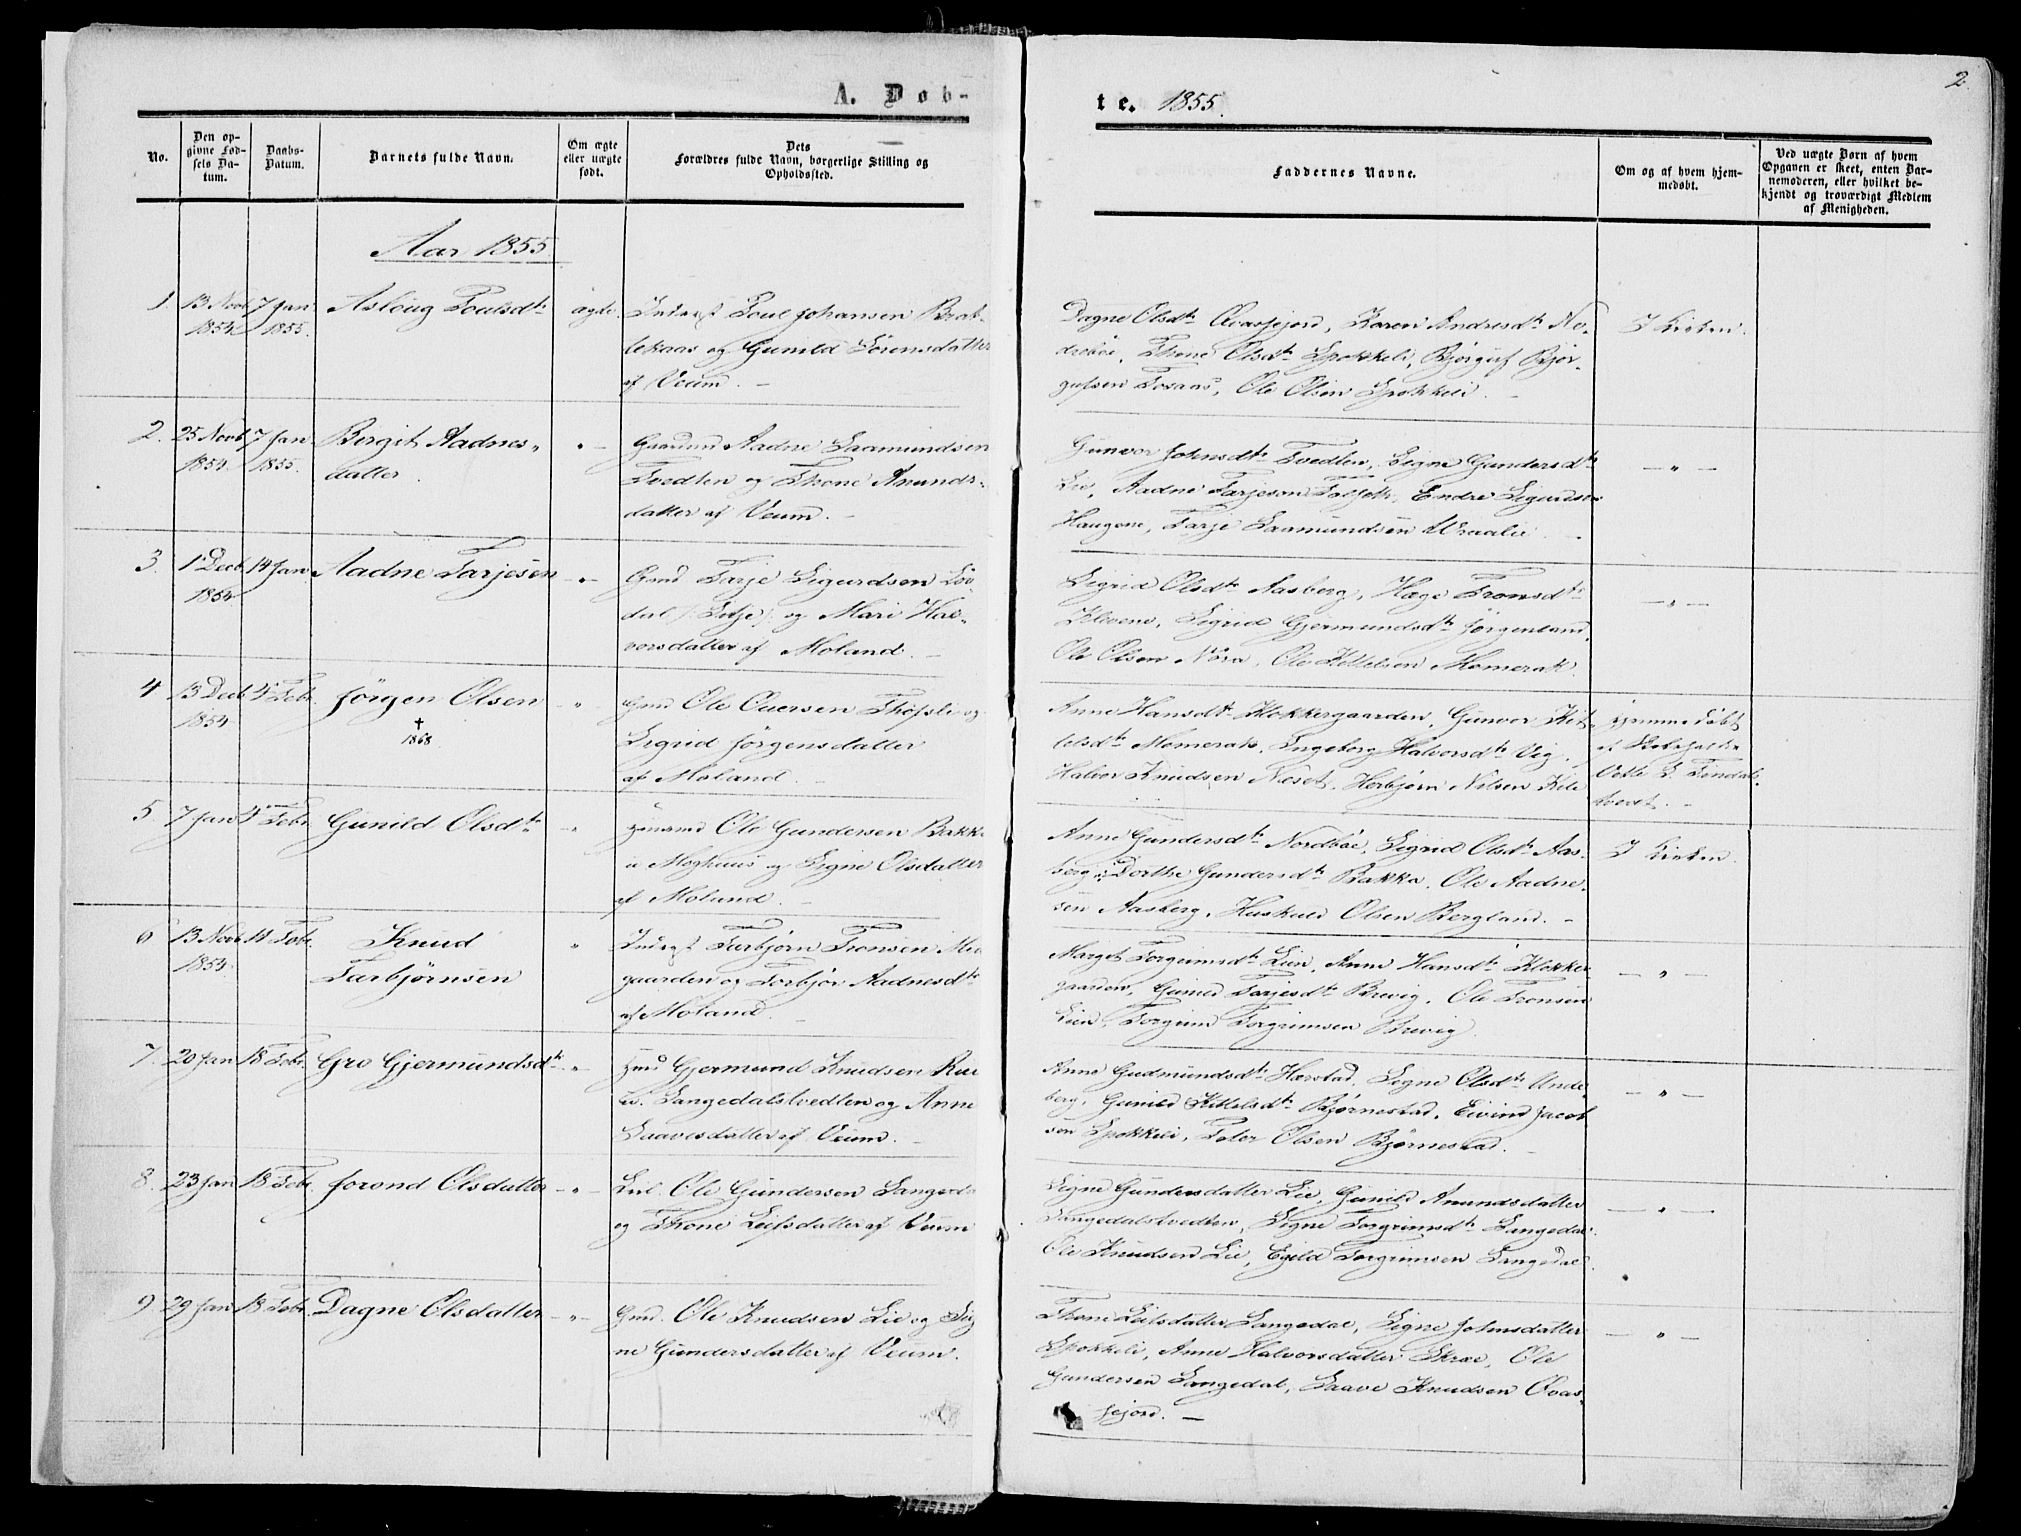 2.
A. Døb-
te. 1855.
No.
Den op-
givne Fød-
sels Da-
tum.
Daabs-
Datum.
Barnets fulde Navn.
Om ægte
eller uægte
født.
Dets
Forældres fulde Navn, borgerlige Stilling og
Opholdssted.
Faddernes Navne.
Om og af hvem hjem-
medøbt.
Ved uægte Børn af hvem
Opgaven er skeet, enten Bar-
nemoderen, eller hvilket be-
kjendt og troværdigt Medlem
af Menigheden.
Aar 1855
1. 13 Novb 7 Jan Aslöug Poulsdtr ægte. Inderst Poul Johansen Brat-
1854 1855. lekaas og Gunild Sörensdatter
af Veum. -
Dagne Olsdtr Qvasfjord, Karen Andresdtr Ne-
drebøe, Thone Olsdtr Spokkeli, Bjørguf Bjør-
gufsen Tosaas, Ole Olsen Spokkeli. -
I Kirken.
2. 25 Novb 7 Jan Birgit Aadnes- " - Gaardmd Aadne Saamundsen
1854 1855. datter. Tvedten og Thone Anunds-
datter af Veum. -
Gunvor Johnsdtr Tvedten, Signe Gundersdtr
Lie, Aadne Tarjeson, Endre Sigurdsen
Haugene, Tarje Saamundsen Vraalie. -
- " -
3. 1 Decb 14 Jan Aadne Tarjesen - " - Gmd Tarje Sigurdsen Löv-
1854 dal og Mari Hal-
vorsdatter af Moland. -
Sigrid Olsdtr Aasberg, Hæge Tronsdtr
Klevene, Sigrid Gjermundsdtr Jørgenland,
Ole Olsen Nöra, Ole Kittelsen Momerak.
- " -
4 13 Decb 4 Febr Jörgen Olsen - " Gmd Ole Thofsli og
1854 † 1868 Sigrid Jörgensdatter
af Moland. -
Anne Hansdtr Klokkergaarden, Gunvor Kit-
telsdtr Momerak, Ingeborg Halvorsdtr Vig,
Halvor Knudsen Næset, Herbjørn Nilsen Kile
Hjemmedöbt
af
Vetle
tvedt. -
5. 7 Jan 4 Febr Gunild Olsdtr - " Ole Gundersen Bakka
og Signe Olsdatter
af Moland. -
Anne Gundersdtr Nordböe, Sigrid Olsdtr Aas-
berg, Dorthe Gundersdtr Bakka, Ole Aadne-
sen Aasberg, Huskuld Olsen Bergland. -
I Kirken.
6 13 Novb 11 Febr. Knud " Inderst Tarbjörn Tronsen Mid-
1854 Tarbjörnsen gaarden og Torbjör Aadnesdtr
af Moland. -
Margit Torgrimsdtr Lien, Anne Hansdtr Klokker-
gaarden, Gunild Tarjesdtr Brevig, Ole Tronsen
Lien, Torgrim Torgrimsen Brevig.
- " -
7. 20 Jan 18 Febr. Gro Gjermundsdtr - " Gjermund Knudsen
Langedalstvedten og Anne
Saavesdatter af Veum. -
Anne Gudmundsdtr Harstad, Signe Olsdtr Unde-
berg, Gunild Kittelsdtr Bjørnestad, Eivind Jacob-
sen Spokkeli, Peter Olsen Bjørnestad. -
- " -
8. 23 Jan 18 Febr. Jorond Olsdatter - " - Ole Gundersen Langedal
og Thone Leifsdatter af Veum
Signe Gundersdatter Lie, Gunild Anundsdatter
Langedalstvedten, Signe Torgrimsdtr Langedal
Ole Knudsen Lie, Egild Torgrimsen Langedal.
- " -
9 29 Jan 18 Febr. Dagne Olsdatter - " - Gmd. Ole Knudsen Lie og Sig-
ne Gundersdatter af Veum.
Thone Leifsdatter Langedal, Signe Johnsdatter
Spokkeli, Anne Halvorsdatter Skræe, Ole
Gundersen Langedal, Saave Knudsen Qvas-
fejord. -
- " -